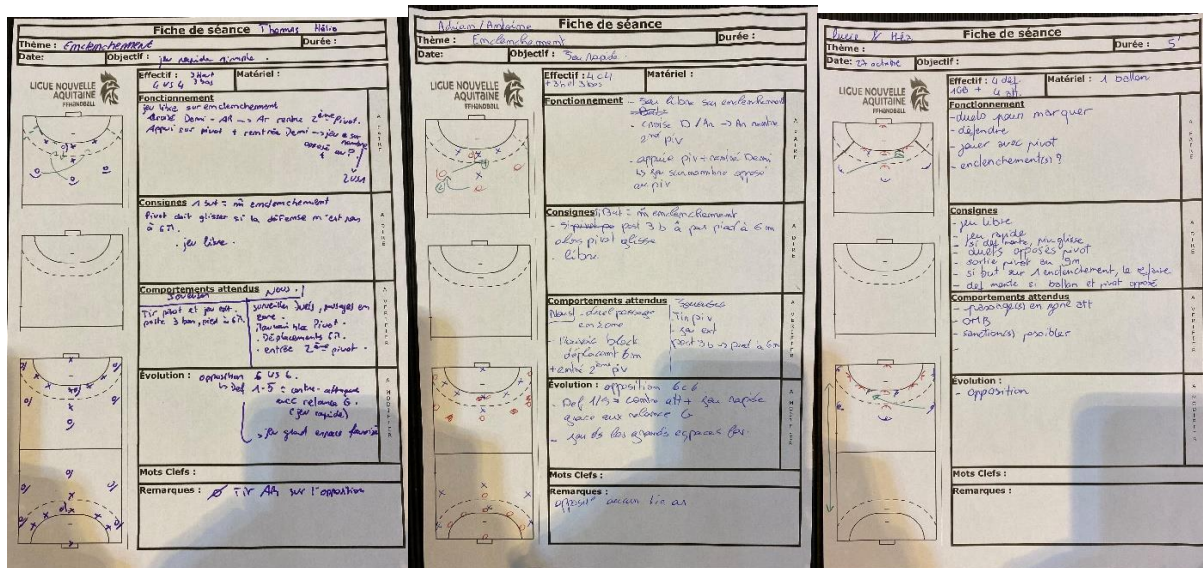 Fiche de séance Thomas Hélio
Thème : Emclenchement Durée :
Date: Objectif : jeu rapide simple.
LIGUE NOUVELLE
AQUITAINE
FFHANDBALL
Effectif : 3 Haut
4 vs 4 3 bas
Matériel :
Fonctionnement
jeu libre sur emclenchement
Croisé Demi - AR -> Ar rentre 2ème Pivot.
Appui sur pivot + rentrée Demi -> jeu sur nombre
opposé au P
2 vs 1
A FAIRE
Consignes 1 but = m̂ emclenchement
Pivot doit glisser si la défense n'est pas
à 6m.
. jeu libre.
A DIRE
Comportements attendus
Joueurs Nous !
Tir pivot et jeu ext.
poste 3 bas, pied à 6m.
surveiller duels, passages en
zone.
Mauvais bloc Pivot.
Déplacements 6m.
entrée 2ème pivot.
A VERIFIER
Évolution : opposition 6 vs 6.
Def 1-5 = contre-attaque
avec relance G.
(jeu rapide)
-> jeu grand espace favorisé
A MODIFIER
Mots Clefs :
Remarques : Ø Tir AR sur l'opposition
Adrien/Antoine Fiche de séance
Thème : Emclenchement Durée :
Date: Objectif : Jeu Rapide
LIGUE NOUVELLE
AQUITAINE
FFHANDBALL
Effectif : 4 c 4
+ 3h et 3 bas
Matériel :
Fonctionnement - jeu libre sur enclenchement
- croise D / Ar -> Ar rentre
2nd piv
- appuie piv + remise Demi
jeu sur nombre opposé
au piv
A FAIRE
Consignes 1 But = m̂ emclenchement
- si post 3 b à pas pied à 6 m
alors pivot glisse
. libre
A DIRE
Comportements attendus Joueuses
Nous - duel passage
en zone
- Mauvais block
déplacement 6m
+ entré 2ème piv
Tir piv
- jeu ext
post 3 b -> pied à 6m
A VERIFIER
Évolution : opposition 6c6
- Def 1/5 = contre att + jeu rapide
grace aux relance G
- jeu ds les grands espaces
A MODIFIER
Mots Clefs :
Remarques :
opposit° aucun tir ar
Lucie & Fiche de séance
Thème : Durée : 5'
Date: 27 octobre Objectif :
LIGUE NOUVELLE
AQUITAINE
FFHANDBALL
Effectif : 4 def
1GB + 4 att.
Matériel : 1 ballon
Fonctionnement
- duels pour marquer
- défendre
- jouer avec pivot
- enclenchement(s) ?
A FAIRE
Consignes
- jeu libre
- jeu rapide
- si def monte, piv glisse
- duels opposés pivot
- sortie pivot au 9m
- si but sur 1 enclenchement, le refaire
- def monte si ballon et pivot opposé
A DIRE
Comportements attendus
- passage(s) en zone att
- OMB
- sanction(s) possibles
-
A VERIFIER
Évolution :
- opposition
A MODIFIER
Mots Clefs :
Remarques :